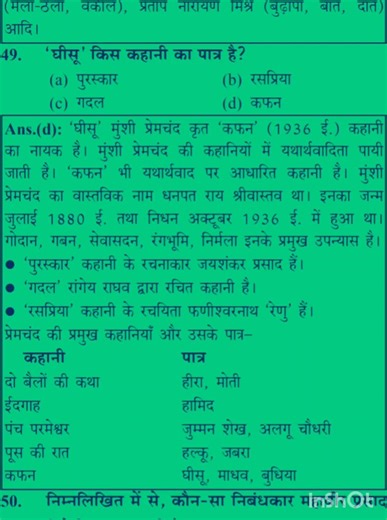 (मेला-ठेला, वकील), प्रताप नारायण मिश्र (बुढ़ापा, बात, दाँत)
आदि।
49. 'घीसू' किस कहानी का पात्र है?
(a) पुरस्कार (b) रसप्रिया
(c) गदल (d) कफन
Ans.(d): 'घीसू' मुंशी प्रेमचंद कृत 'कफन' (1936 ई.) कहानी
का नायक है। मुंशी प्रेमचंद की कहानियों में यथार्थवादिता पायी
जाती है। 'कफन' भी यथार्थवाद पर आधारित कहानी है। मुंशी
प्रेमचंद का वास्तविक नाम धनपत राय श्रीवास्तव था। इनका जन्म
जुलाई 1880 ई. तथा निधन अक्टूबर 1936 ई. में हुआ था।
गोदान, गबन, सेवासदन, रंगभूमि, निर्मला इनके प्रमुख उपन्यास है।
● 'पुरस्कार' कहानी के रचनाकार जयशंकर प्रसाद हैं।
● 'गदल' रांगेय राघव द्वारा रचित कहानी है।
● 'रसप्रिया' कहानी के रचयिता फणीश्वरनाथ 'रेणु' हैं।
प्रेमचंद की प्रमुख कहानियाँ और उसके पात्र–
कहानी पात्र
दो बैलों की कथा हीरा, मोती
ईदगाह हामिद
पंच परमेश्वर जुम्मन शेख, अलगू चौधरी
पूस की रात हल्कू, जबरा
कफन घीसू, माधव, बुधिया
50. निम्नलिखित में से, कौन-सा निबंधकार
InShOt